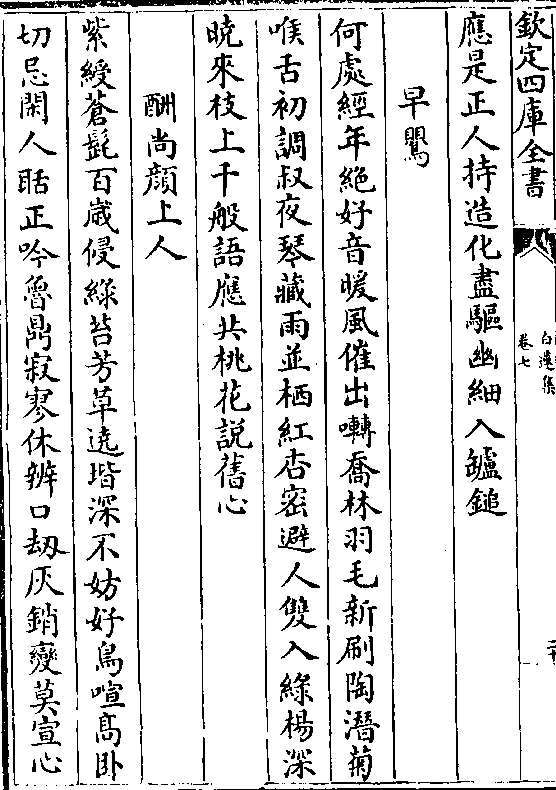 欽定四庫全書
白蓮集
卷七
應是正人持造化盡驅幽細入鑪鎚
早鸎
何處經年絶好音暖風催出囀喬林羽毛新刷陶潛菊
喉舌初調叔夜琴藏雨並栖紅杏密避人雙入綠楊深
曉來枝上千般語應共桃花說舊心
酬尚顔上人
紫綬蒼髭百歲侵綠苔芳草遶堦深不妨好鳥喧髙卧
切忌閑人聒正吟魯鼎寂寥休辨口刼灰銷變莫宣心